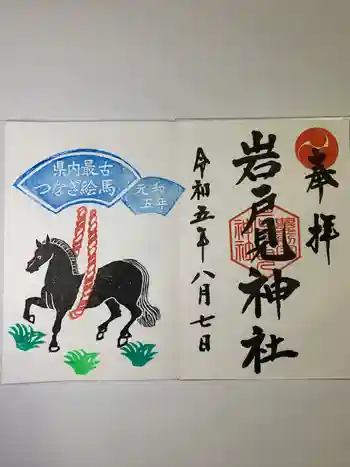 奉拝
岩戸見神社
令和五年八月七日
県内最古
つなぎ絵馬
元和
五年